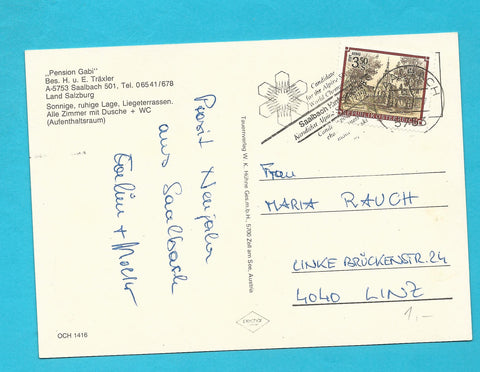 „Pension Gabi"
Bes. H. u. E. Träxler
A-5753 Saalbach 501, Tel. 06541/678
Land Salzburg
Sonnige, ruhige Lage, Liegeterrassen.
Alle Zimmer mit Dusche + WC
(Aufenthaltsraum)
Prosit Neujahr
aus Saalbach
OCH 1416
Tauernverlag W. K. Hühne Ges.m.b.H., 5700 Zell am See, Austria
Candidate
for the Alpine
World
Saalbach
3.50
Frau
MARIA RAUCH
LINKE BRÜCKENSTR. 24
4040 LINZ
1,-